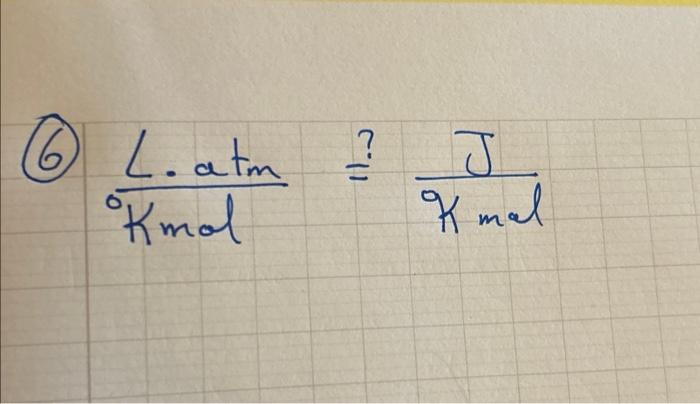 ⑥ L.atm/°Kmol =? J/°K mol